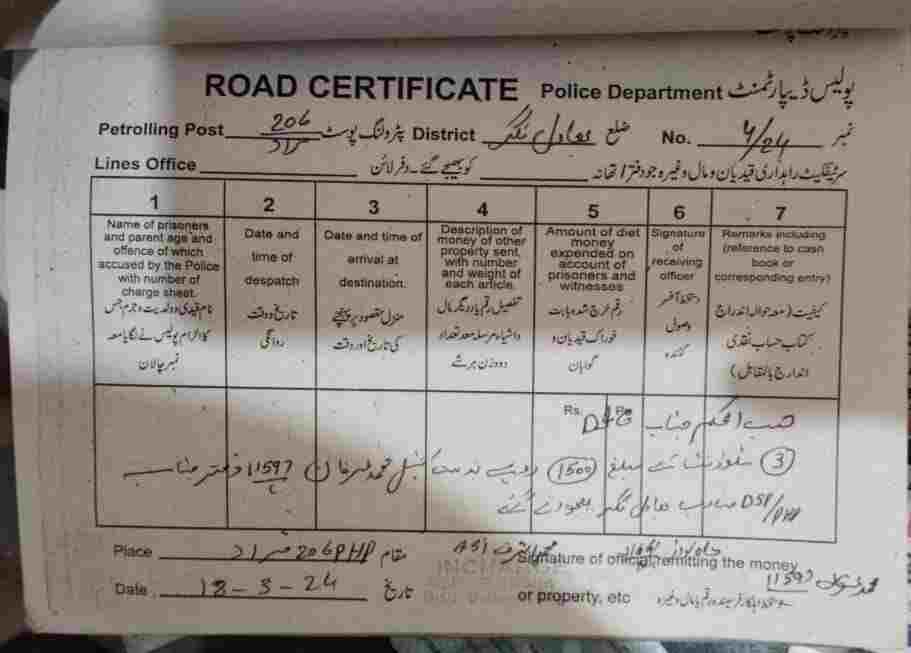 ROAD CERTIFICATE Police Department پولیس ڈیپارٹمنٹ
Petrolling Post 206 مراد پٹرولنگ پوسٹ District بہاولنگر ضلع No. 4/24 نمبر
Lines Office کو بھیجے گئے۔ دفتر لائن سرٹیفکیٹ راہداری قیدیان و مال وغیرہ جو دفتر / تھانہ
1 2 3 4 5 6 7
Name of prisoners and parent age and offence of which accused by the Police with number of charge sheet.
نام قیدی و ولدیت و جرم جس کا الزام پولیس نے لگایا معہ نمبر چالان
Date and time of despatch
تاریخ و وقت روانگی
Date and time of arrival at destination.
منزل مقصود پر پہنچنے کی تاریخ اور وقت
Description of money of other property sent, with number and weight of each article.
تفصیل رقم یا دیگر مال و اشیاء مرسلہ معہ تعداد و وزن ہر شے
Amount of diet money expended on account of prisoners and witnesses
رقم خرچ شدہ بابت خوراک قیدیان و گواہان
Signature of receiving officer
دستخط آفسر وصول کنندہ
Remarks including (reference to cash book or corresponding entry)
کیفیت (معہ حوالہ اندراج کتاب حساب نقدی اندارج بالمقابل)
Rs. Ps.
حسب الحکم جناب
③ مبلغ 1500 روپے بدست کنسٹیبل محمد 11597/C دفتر جناب
DSP/PHP صاحب بہاولنگر بھجوائے گئے
Place 206 PHP مراد مقام
ASI
Signature of official remitting the money
11597
Date 18-3-24 تاریخ or property, etc